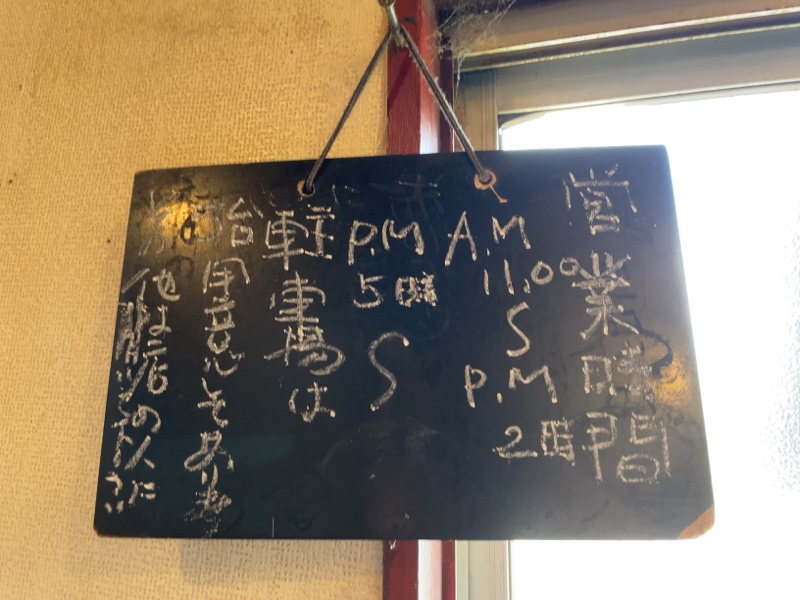 営業時間
A.M 11.00 S P.M 2時
P.M 5時 S
駐車場は
台用意してあります
他は店の人に